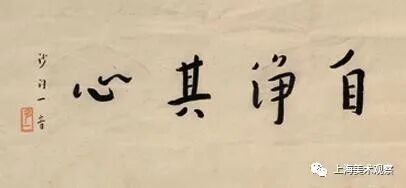 自净其心
沙门一音
上海美术观察